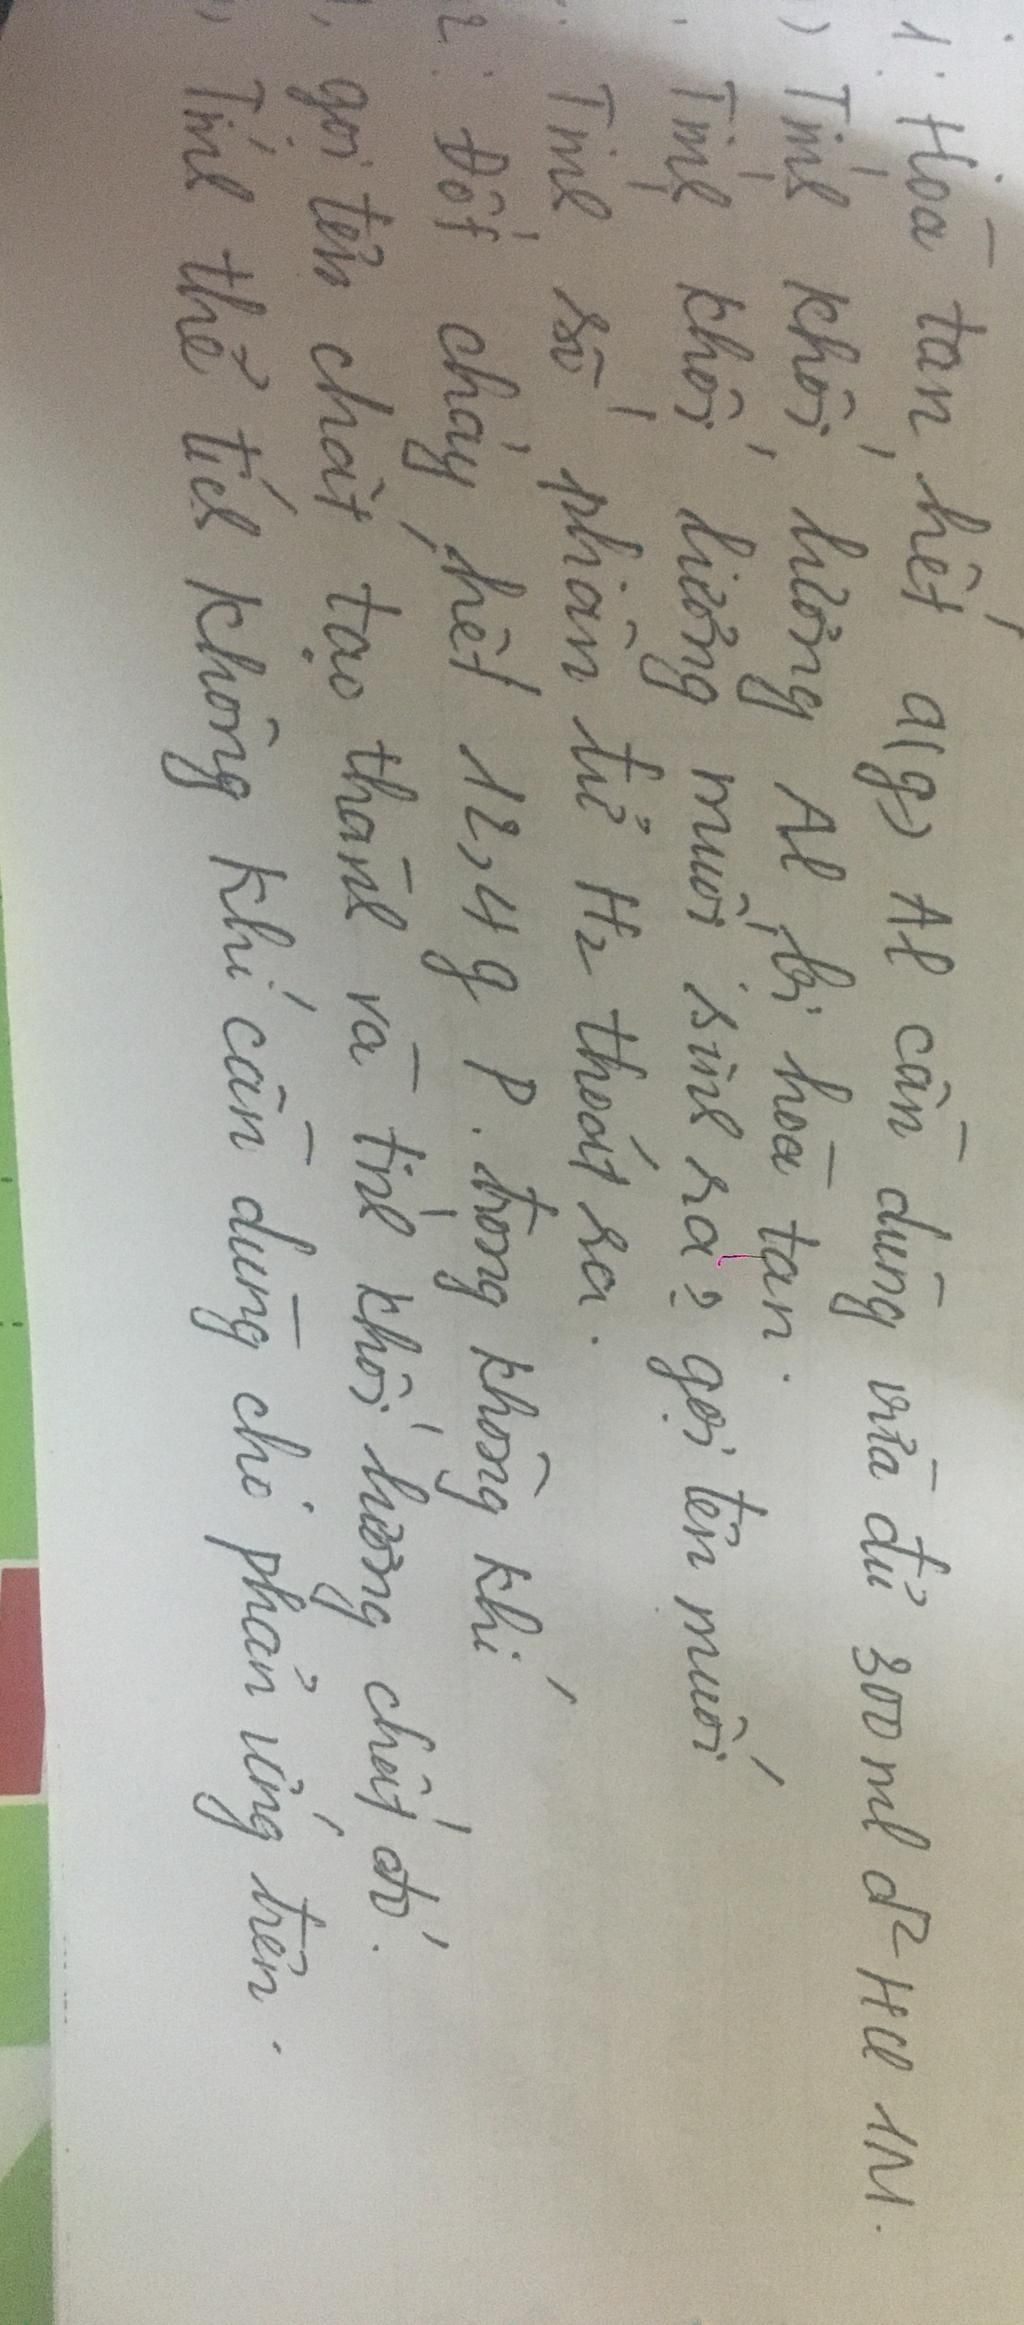 1: Hòa tan hết a(g) Al cần dùng vừa đủ 300 ml d² HCl 1M.
) Tính khối lượng Al bị hòa tan.
Tính khối lượng muối sinh ra? gọi tên muối
Tính số phân tử H2 thoát ra.
2: Đốt cháy hết 12,4 g P. trong không khí
, gọi tên chất tạo thành và tính khối lượng chất đó.
, Tính thể tích không khí cần dùng cho phản ứng trên.